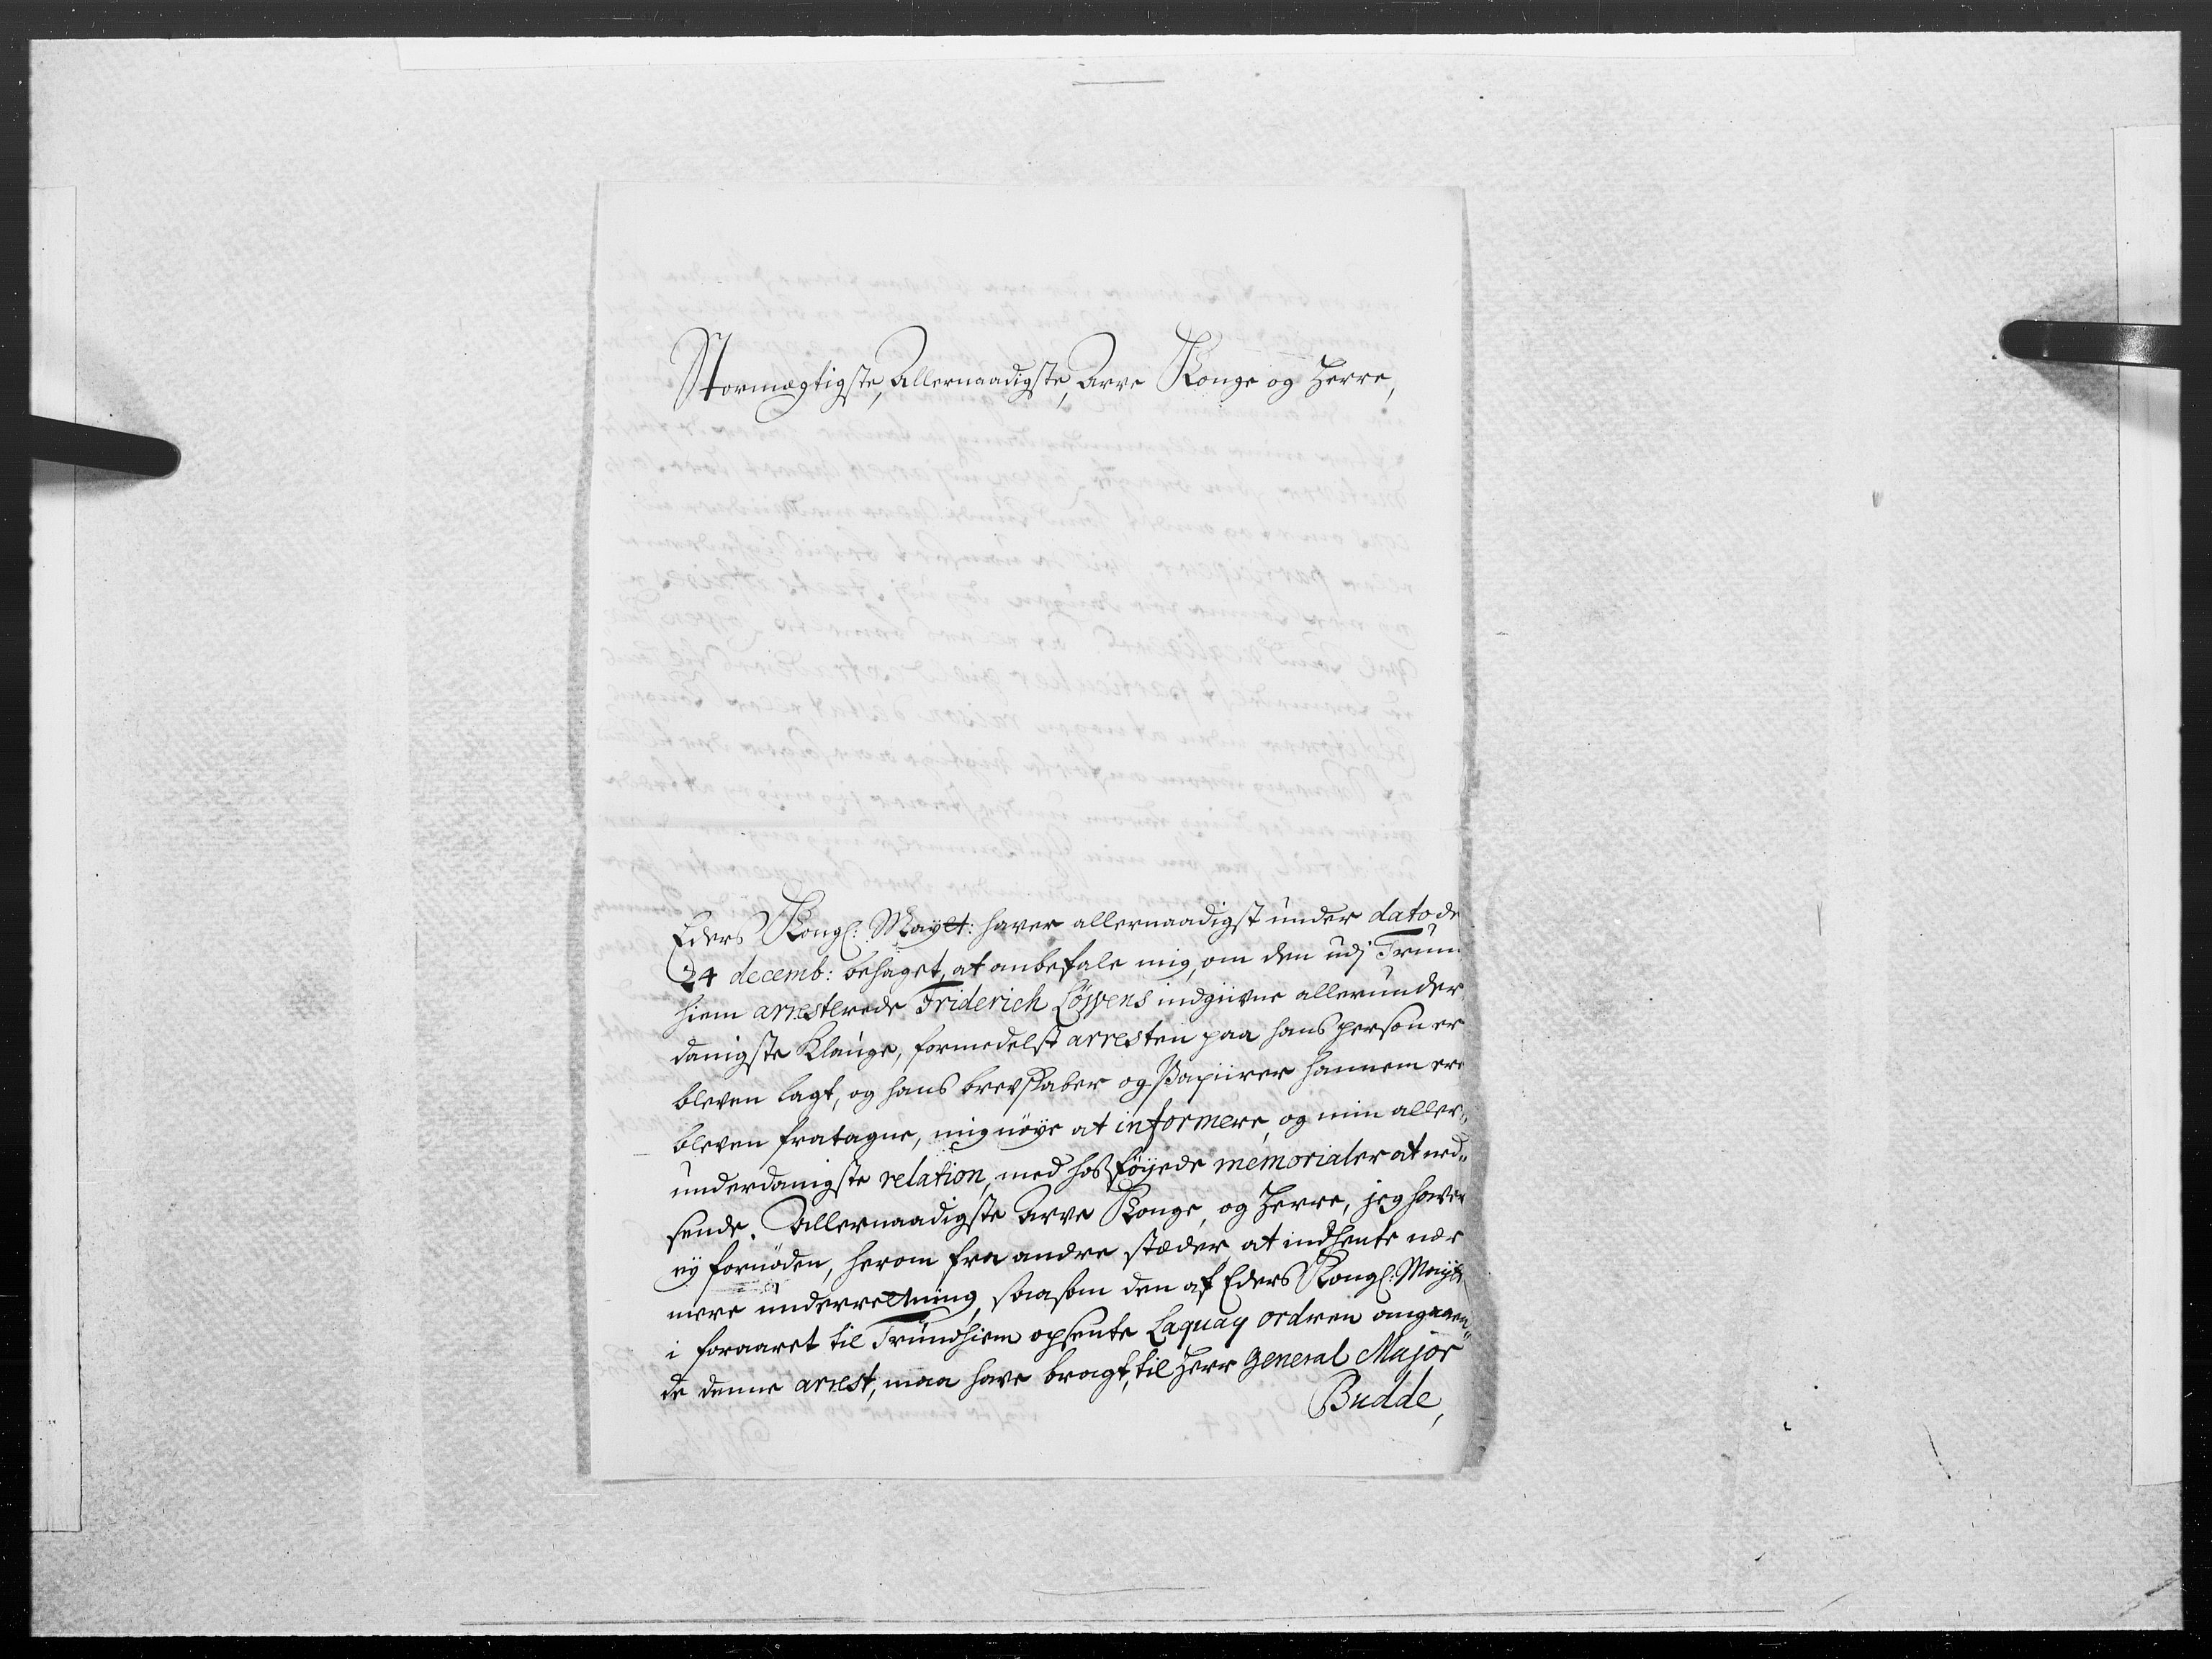 Stormægtigste, Allernaadigste, Arve Konge og Herre,
Eders Kongl: Mayst: haver allernaadigst under dato de
24 decemb: behaget, at anbefale mig, om den udj Trun
hiem arresterede Friderich Löwens indgivne allerunder
danigste Klauge, formedelst arresten paa hans person er
bleven lagt, og hans brevskaber og Papiirer hannem ere
bleven fratagne, mig nöye at informere, og min aller„
underdanigste relation, med hosföyede memorialer at ned„
sende. Allernaadigste Arve Konge, og Herre, jeg haver
ey fornöden, herom fra andre stæder, at indhente nær
mere underrettning, saasom den af Eders Kongl: Mayts
i foraaret til Trundhiem opsente Laquay ordren angaaen„
de denne arrest, maa have bragt, til Herr General Major
Budde,